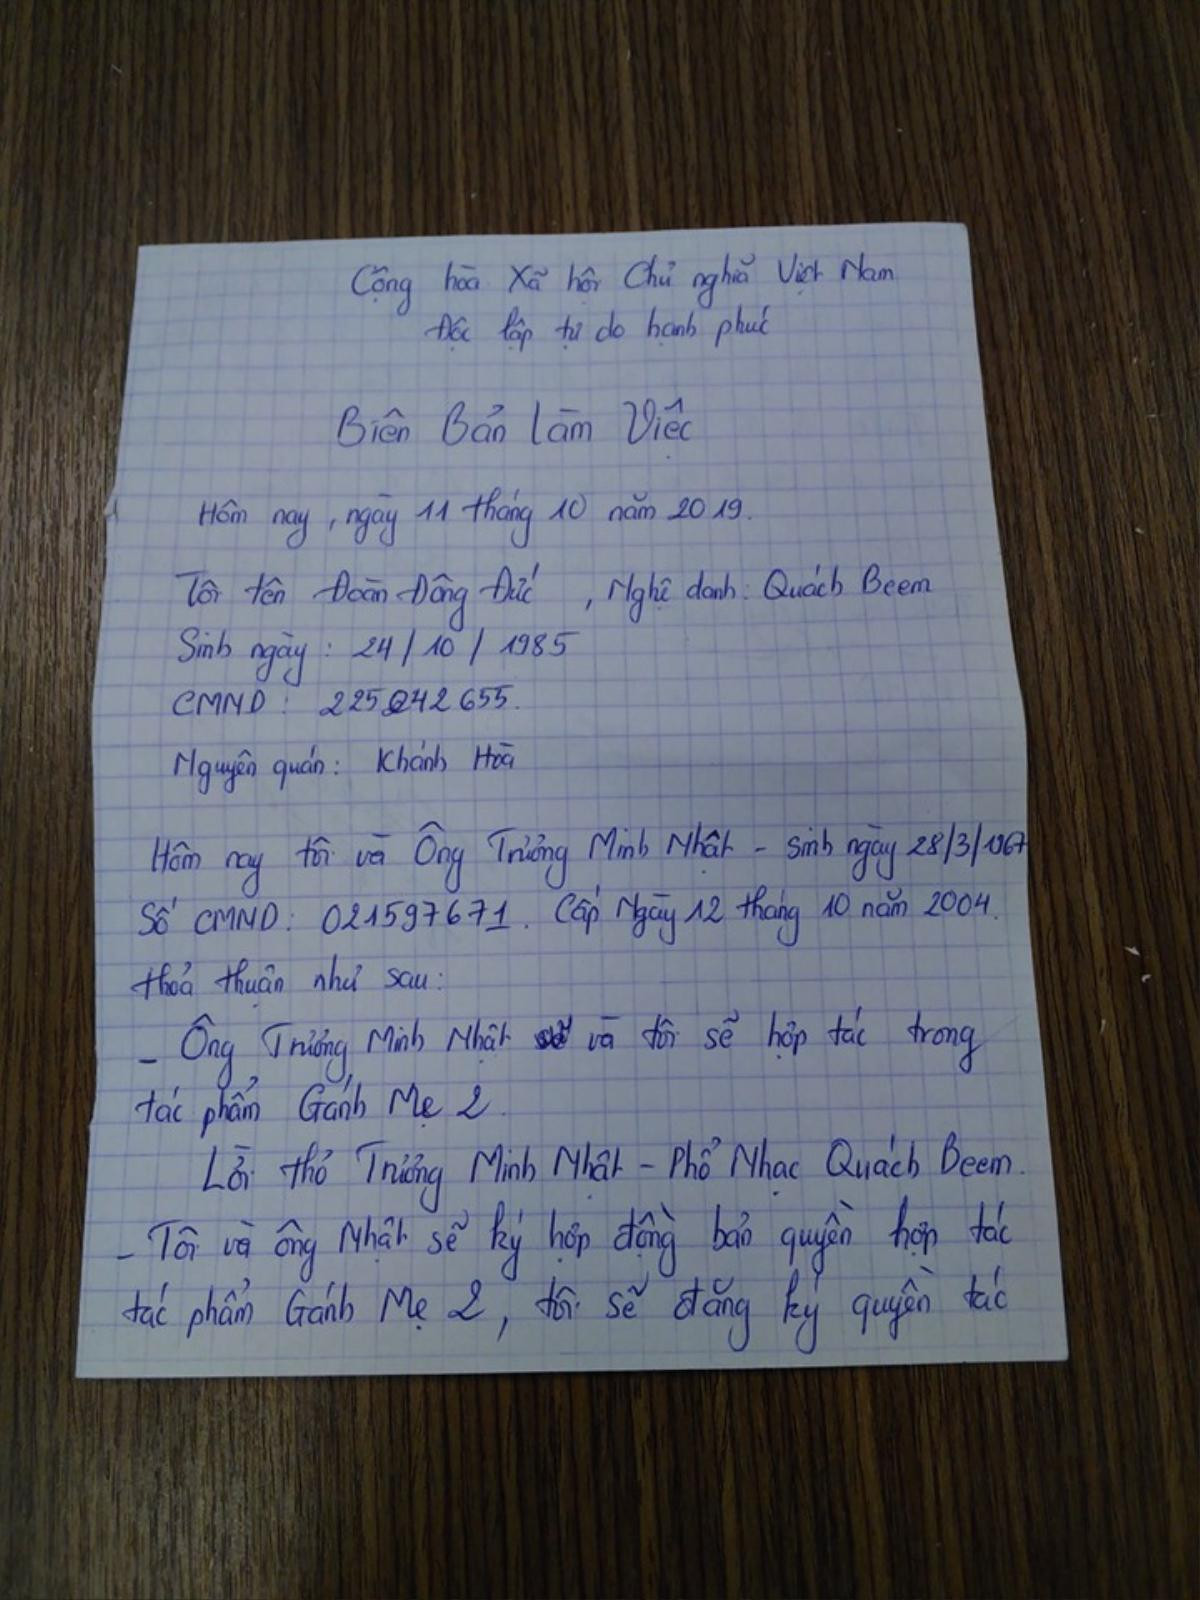 Cộng hòa Xã hội Chủ nghĩa Việt Nam
Độc lập tự do hạnh phúc
Biên Bản Làm Việc
Hôm nay, ngày 11 tháng 10 năm 2019.
Tôi tên Đoàn Đông Đức , Nghệ danh: Quách Beem
Sinh ngày: 24/10/1985
CMND: 225242655.
Nguyên quán: Khánh Hòa
Hôm nay tôi và Ông Trương Minh Nhật - Sinh ngày 28/3/1967
Số CMND: 021597671. Cấp Ngày 12 tháng 10 năm 2004.
thoả thuận như sau:
- Ông Trương Minh Nhật và tôi sẽ hợp tác trong
tác phẩm Gánh Mẹ 2.
Lời thơ Trương Minh Nhật - Phổ Nhạc Quách Beem.
- Tôi và ông Nhật sẽ ký hợp đồng bản quyền hợp tác
tác phẩm Gánh Mẹ 2, tôi sẽ đăng ký quyền tác